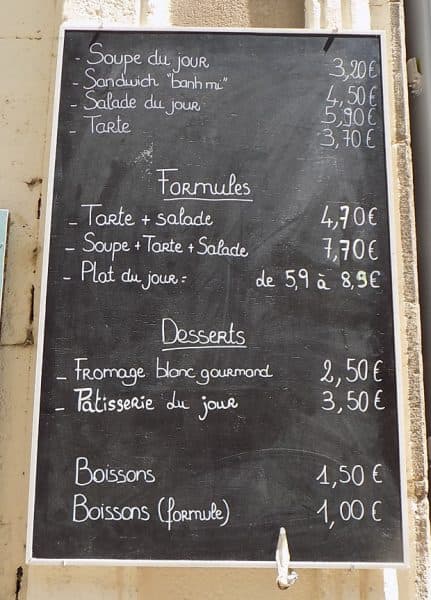 - Soupe du jour 3,20€
- Sandwich "banh mi" 4,50€
- Salade du jour 5,90€
- Tarte 3,70€
Formules
- Tarte + salade 4,70€
- Soupe + Tarte + Salade 7,70€
- Plat du jour = de 5,9 à 8,9€
Desserts
- Fromage blanc gourmand 2,50€
- Patisserie du jour 3,50€
Boissons 1,50€
Boissons (formule) 1,00€